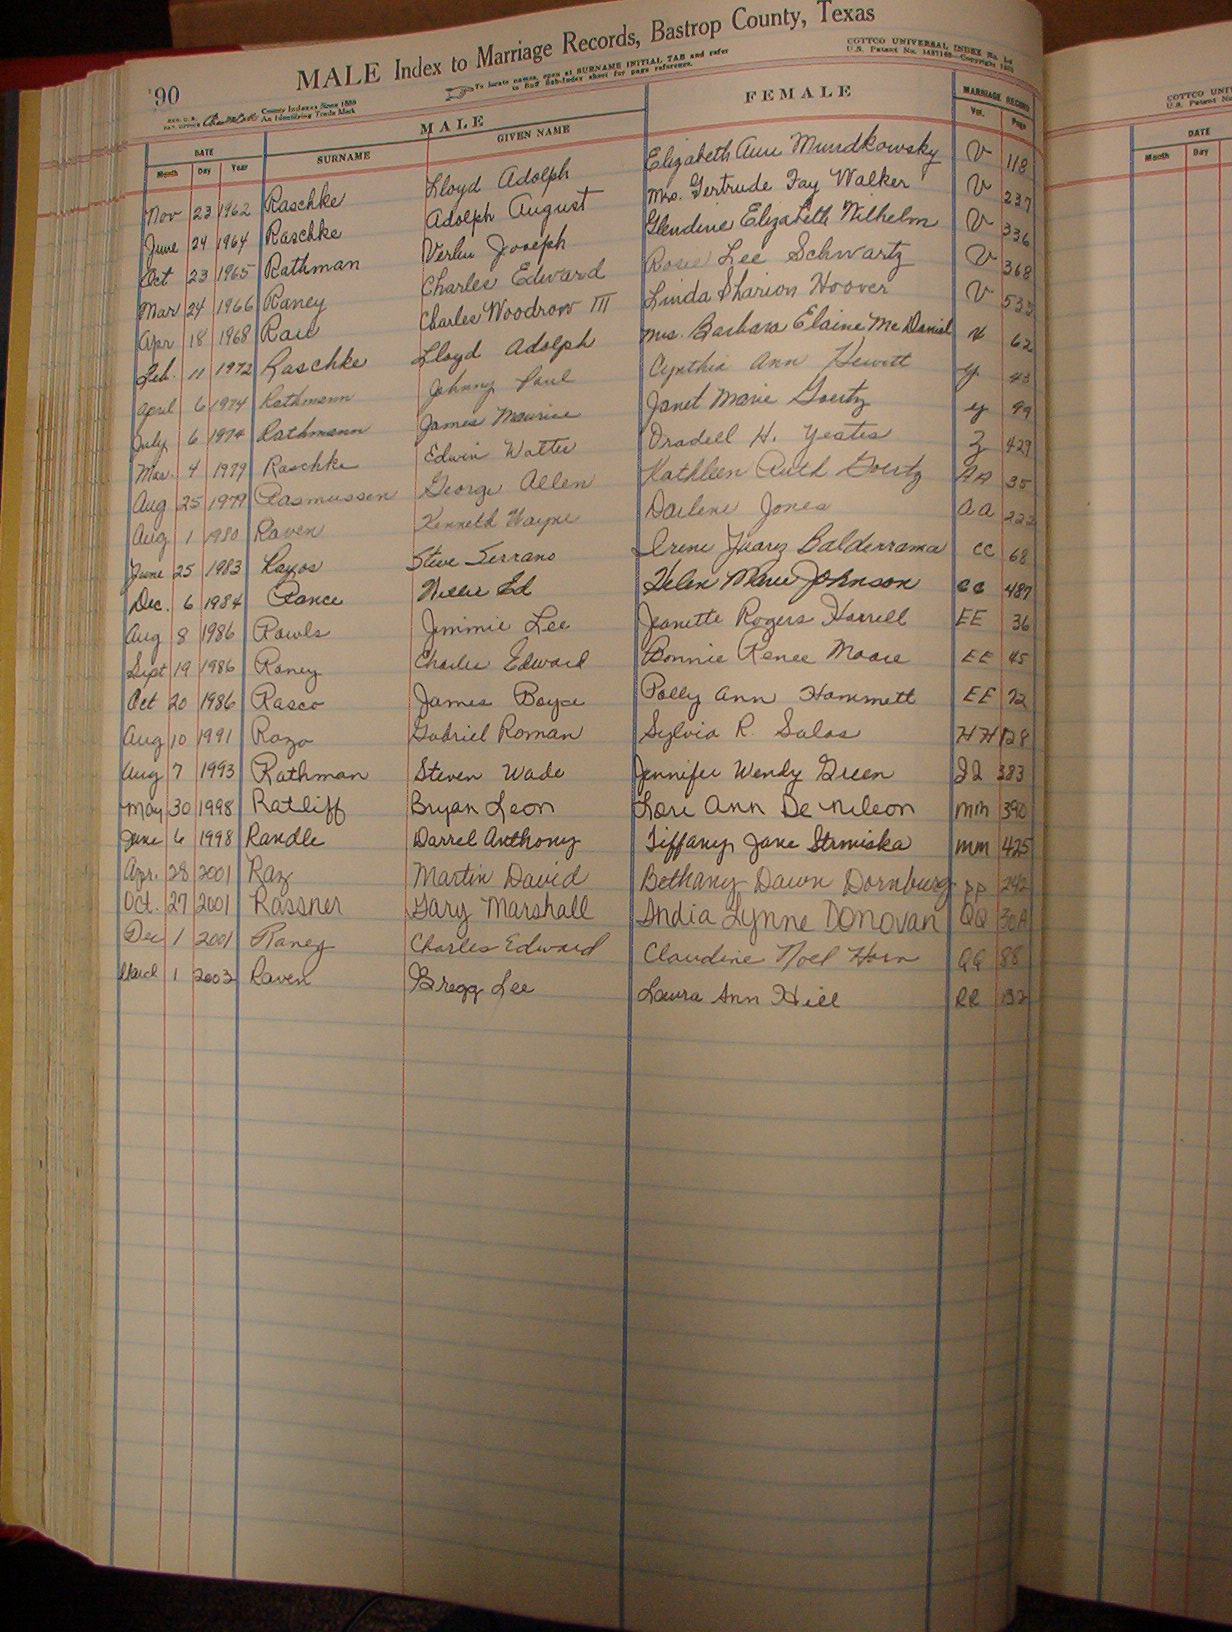 MALE Index to Marriage Records, Bastrop County, Texas
COTTCO UNIVERSAL INDEX No.
U.S. Patent No. Copyright
'90
REG. U.S. PAT. OFFICE County Indexes Since 1888 An Identifying Trade Mark
To locate names, open at SURNAME INITIAL TAB and refer
to Sub-Index sheet for page reference.
DATE MALE FEMALE MARRIAGE RECORD
Month Day Year SURNAME GIVEN NAME Vol. Page
Nov 23 1962 Raschke Lloyd Adolph Elizabeth Ann Mundkowsky V 118
June 24 1964 Raschke Adolph August Mrs. Gertrude Fay Walker V 237
Oct 23 1965 Rathman Verlin Joseph Glendine Elizabeth Wilhelm V 336
Mar 24 1966 Raney Charles Edward Rosie Lee Schwartz V 368
Apr 18 1968 Charles Woodrow III Linda Sharion Hoover V 533
Feb. 11 1972 Raschke Lloyd Adolph Mrs. Barbara Elaine McDaniel 62
April 6 1974 Rathmann Johnny Paul Cynthia Ann Hewitt y 43
July 6 1974 Rathmann James Maurice Janet Marie Goertz y 99
Mar. 4 1979 Raschke Edwin Walter Oradell H. Yeates Z 429
Aug 25 1979 Rasmussen George Allen Kathleen Ruth Goertz AA 35
Aug 1 1980 Raven Kenneth Wayne Darlene Jones aa 222
June 25 1983 Rayos Steve Serrano Irene Juarez Balderrama CC 68
Dec. 6 1984 Rance Willie Ed Helen Marie Johnson CC 487
Aug 8 1986 Rawls Jimmie Lee Jeanette Rogers Harrell EE 36
Sept 19 1986 Raney Charles Edward Bonnie Renee Moore EE 45
Oct 20 1986 Rasco James Boyce Polly Ann Hammett EE 72
Aug 10 1991 Razo Gabriel Roman Sylvia R. Salas HH 128
Aug 7 1993 Rathman Steven Wade Jennifer Wendy Green 383
May 30 1998 Ratliff Bryan Leon Lori Ann De Nileon mm 390
June 6 1998 Randle Darrel Anthony Tiffany Jane Strmiska mm 425
Apr. 28 2001 Raz Martin David Bethany Dawn Dornburg pp 242
Oct. 27 2001 Rassner Gary Marshall India Lynne DONOVAN QQ 30A
Dec 1 2001 Raney Charles Edward Claudine Noel Horn QQ 88
March 1 2003 Raven Gregg Lee Laura Ann Hill RR 132
COTTCO
U.S. Patent
DATE
Month Day